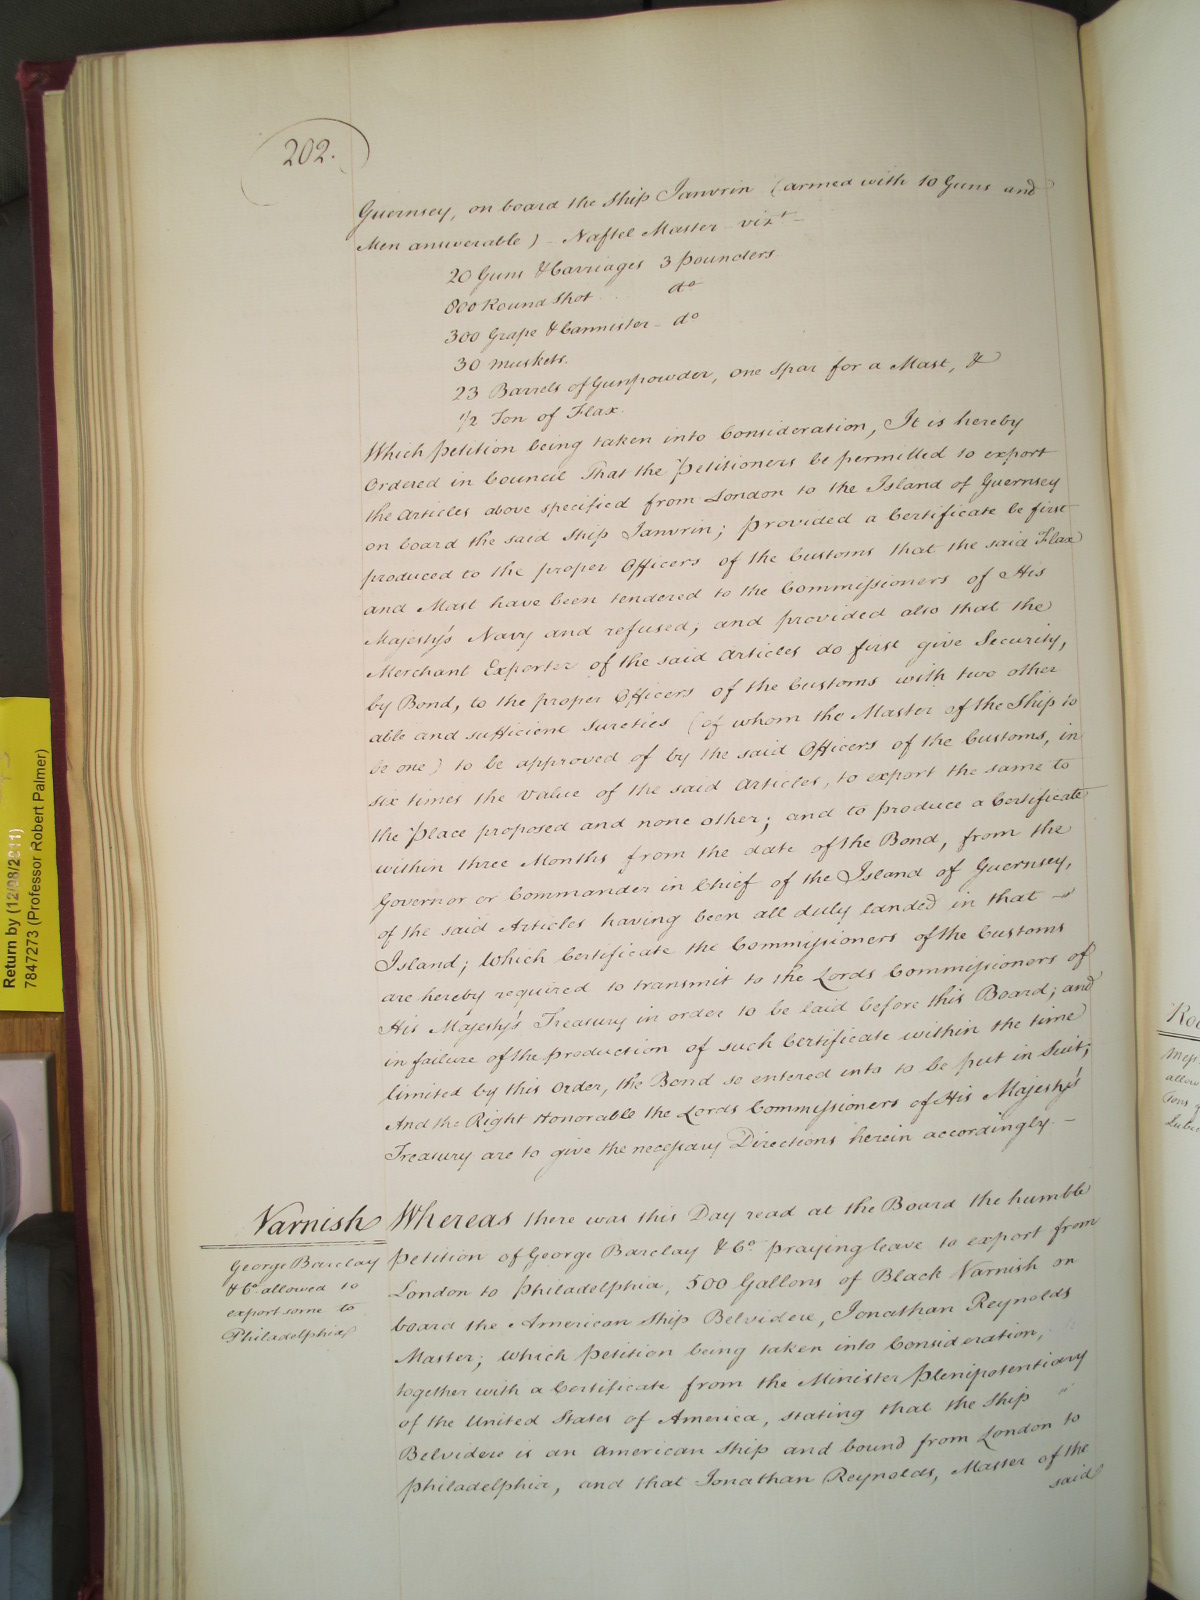 202.
Guernsey, on board the Ship Janvrin (armed with 10 Guns and
Men answerable) - Naftel Master - vizt -
20 Guns & Carriages 3 pounders
800 Round Shot do
300 Grape & Cannister - do
30 muskets.
23 Barrels of Gunpowder, one Spar for a Mast, &
1/2 Ton of Flax.
Which petition being taken into Consideration, It is hereby
Ordered in Council That the Petitioners be permitted to export
the Articles above specified from London to the Island of Guernsey
on board the said Ship Janvrin; provided a Certificate be first
produced to the proper Officers of the Customs that the said Flax
and Mast have been tendered to the Commissioners of His
Majesty's Navy and refused; and provided also that the
Merchant Exporter of the said Articles do first give Security,
by Bond, to the proper Officers of the Customs with two other
able and sufficient Sureties (of whom the Master of the Ship to
be one) to be approved of by the said Officers of the Customs, in
six times the value of the said Articles, to export the same to
the Place proposed and none other; and to produce a Certificate
within three Months from the date of the Bond, from the
Governor or Commander in Chief of the Island of Guernsey,
of the said Articles having been all duly landed in that -
Island; Which Certificate the Commissioners of the Customs
are hereby required to transmit to the Lords Commissioners of
His Majesty's Treasury in order to be laid before this Board; and
in failure of the production of such Certificate within the time
limited by this Order, the Bond so entered into to be put in Suit;
And the Right Honorable the Lords Commissioners of His Majesty's
Treasury are to give the necessary Directions herein accordingly. -
Varnish
George Barclay
& Co allowed to
export some to
Philadelphia
Whereas there was this Day read at the Board the humble
Petition of George Barclay & Co praying leave to export from
London to Philadelphia, 500 Gallons of Black Varnish on
board the American Ship Belvidere, Jonathan Reynolds
Master; Which Petition being taken into Consideration,
together with a Certificate from the Minister Plenipotentiary
of the United States of America, stating that the Ship "
Belvidere is an American Ship and bound from London to
Philadelphia, and that Jonathan Reynolds, Master of the
said
Return by (12/08/2011)
7847273 (Professor Robert Palmer)